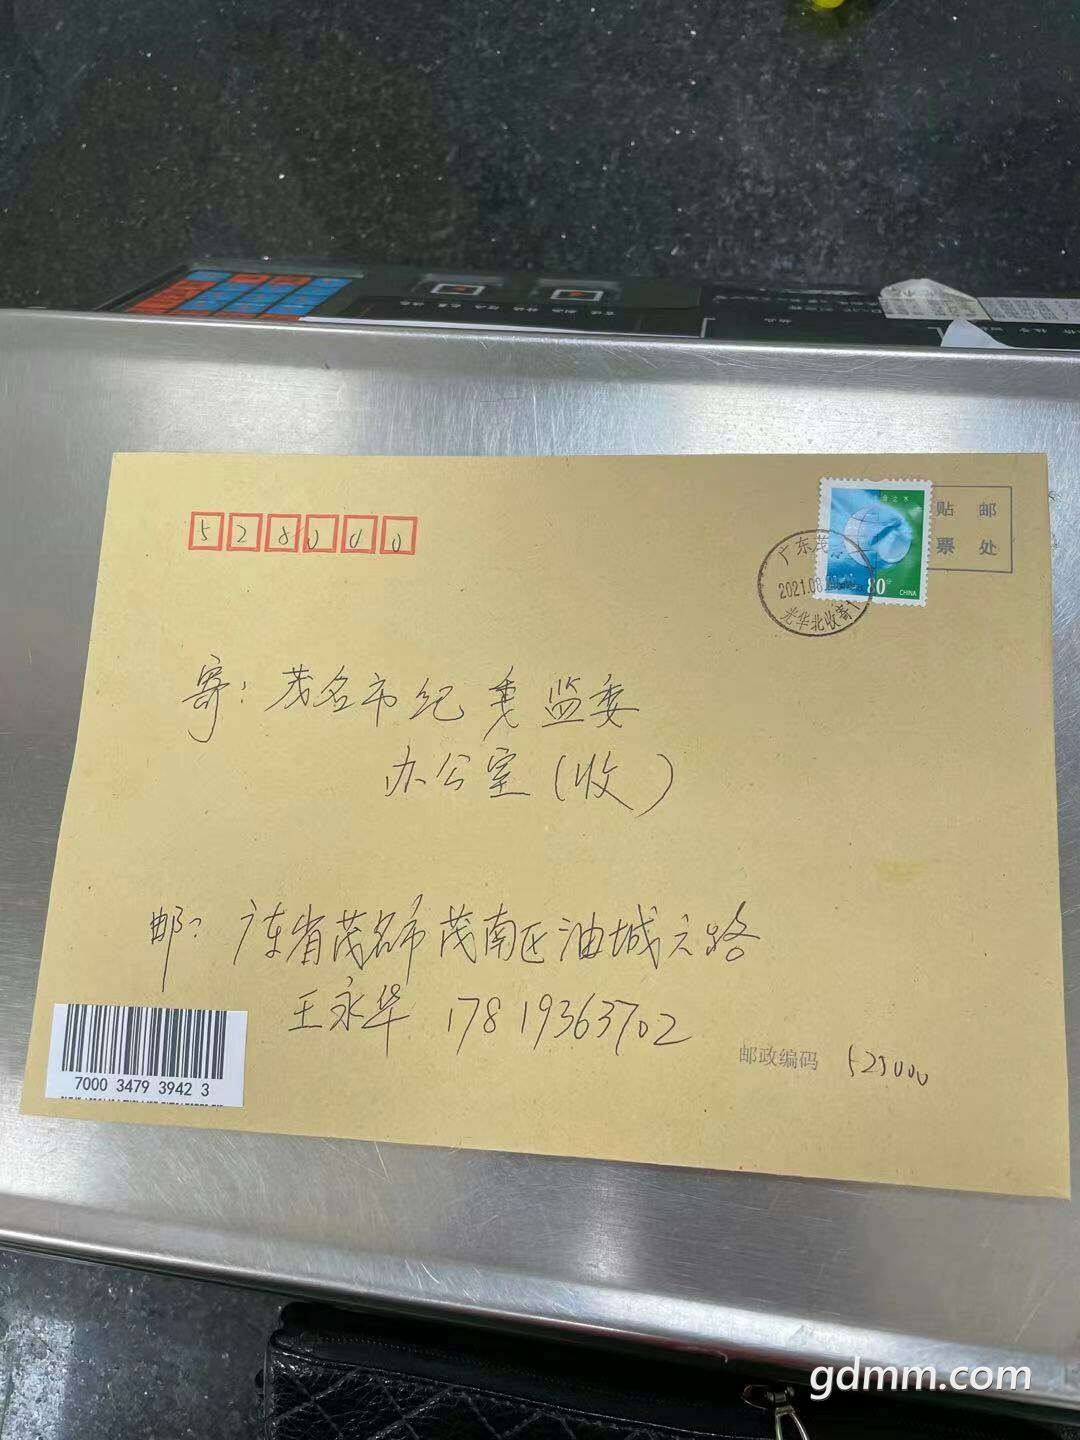 528000
贴 邮
票 处
80分
CHINA
广东茂
2021.08
光华北收寄
寄：茂名市纪委监委
办公室（收）
邮：广东省茂名市茂南区油城六路
王永华 17819363702
邮政编码 525000
7000 3479 3942 3
gdmm.com